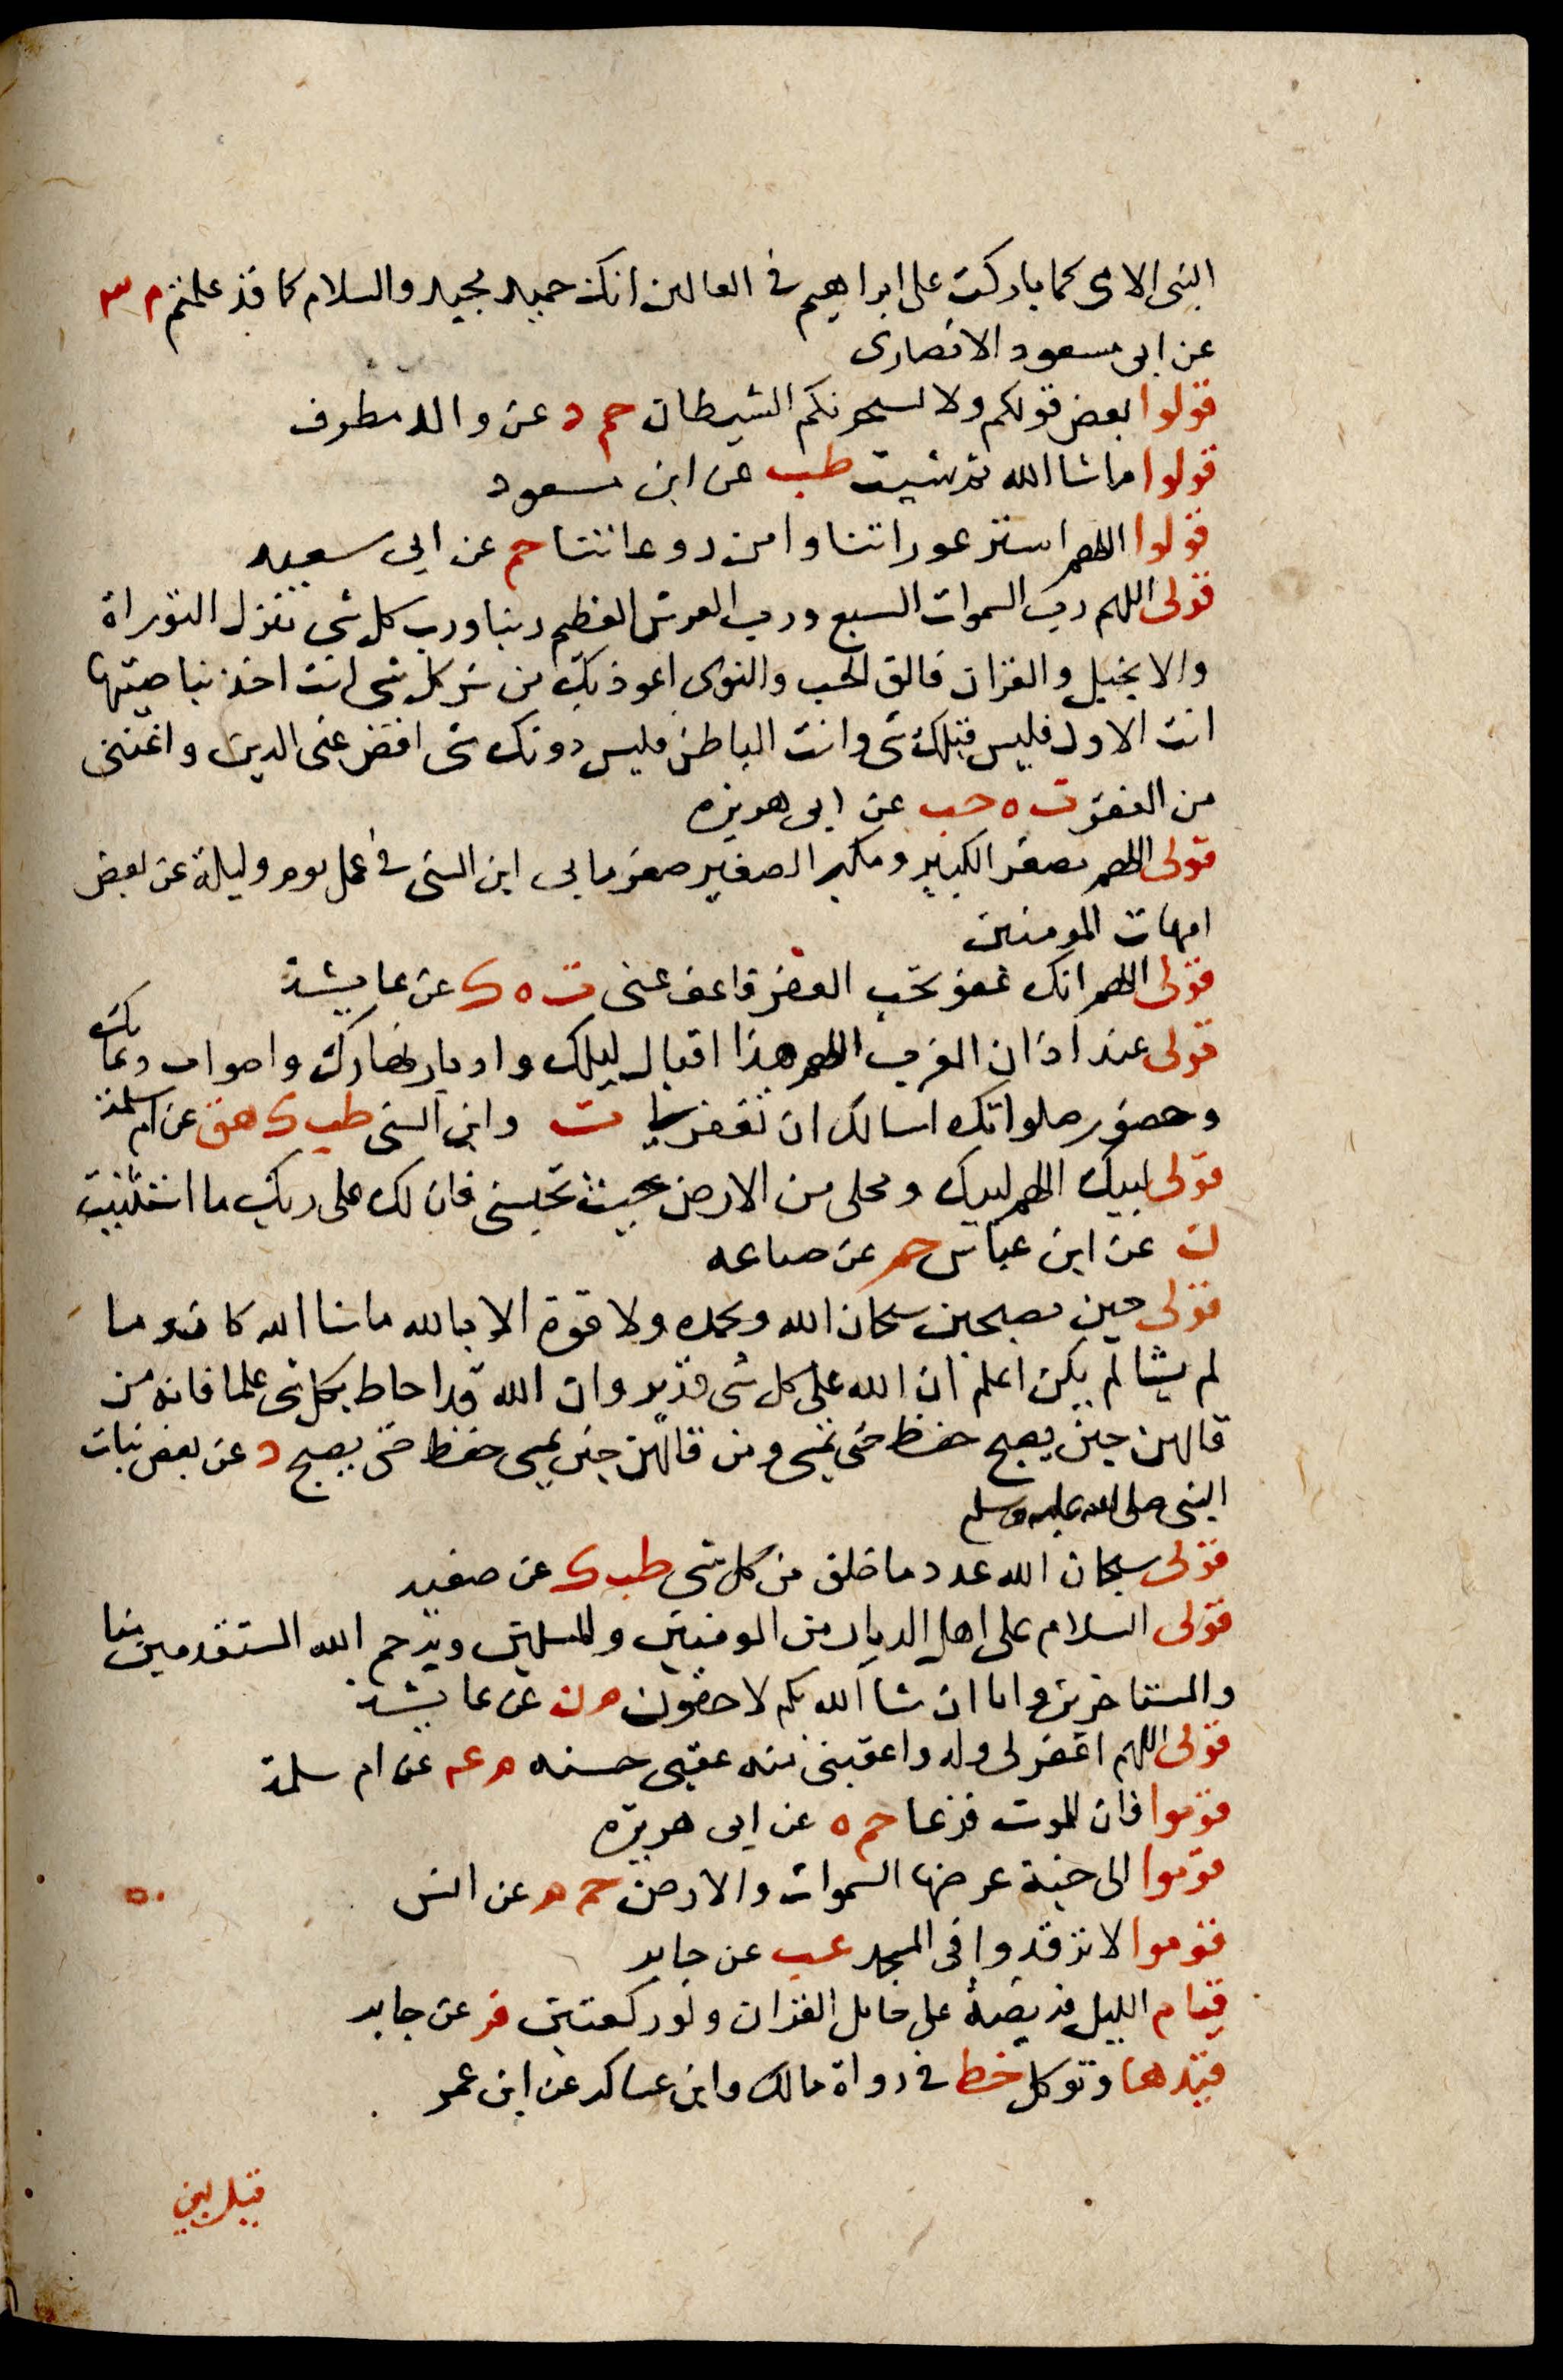 النبى الامى كما باركت على ابراهيم فى العالمين انك حميد مجيد والسلام كما قد علمتم م ٣
عن ابى مسعود الانصارى
قولوا بعض قولكم ولا يستجرنكم الشيطان حم د عن والد مطرف
قولوا ما شا الله ثم شيت طب عن ابن مسعود
قولوا اللهم استر عوراتنا وامن روعاتنا حم عن ابى سعيد
قولى اللهم رب السموات السبع ورب العرش العظيم ربنا ورب كل شى منزل التوراة
والانجيل والقران فالق الحب والنوى اعوذ بك من شر كل شى انت اخذ بناصيتها
انت الاول فليس قبلك شى وانت الباطن فليس دونك شى اقض عنى الدين واغننى
من الفقر ت ه حب عن ابى هريره
قولى اللهم مصغر الكبير ومكبر الصغير صغر ما بى ابن السنى فى عمل يوم وليلة عن بعض
امهات المومنين
قولى اللهم انك عفو تحب العفو فاعف عنى ت ه ك عن عايشة
قولى عند اذان المغرب اللهم هذا اقبال ليلك وادبار نهارك واصوات دعاتك
وحضور صلواتك اسالك ان تغفر لى ت وابن السنى طب ك هق عن ام سلمة
قولى لبيك اللهم لبيك ومحلى من الارض حيث تحبسنى فان لك على ربك ما استثنيت
ن عن ابن عباس حم عن ضباعه
قولى حين تصبحين سبحان الله وبحمده ولا قوة الا بالله ما شا الله كان وما
لم يشا لم يكن اعلم ان الله على كل شى قدير وان الله قد احاط بكل شى علما فانه من
قالهن حين يصبح حفظ حتى يمسى ومن قالهن حين يمسى حفظ حتى يصبح د عن بعض بنات
النبى صلى الله عليه وسلم
قولى سبحان الله عدد ما خلق من كل شى طب ك عن صفيه
قولى السلام على اهل الديار من المومنين والمسلمين ويرحم الله المستقدمين منا
والمستاخرين وانا ان شا الله بكم لاحقون م ن عن عايشة
قولى اللهم اغفر لى وله واعقبنى منه عقبى حسنه م عه عن ام سلمة
قوموا فان للموت فزعا حم ه عن ابى هريره
قوموا الى جنة عرضها السموات والارض حم م عن انس
قوموا لا ترقدوا فى المسجد عب عن جابر
قيام الليل فريضة على حامل القران ولو ركعتين فر عن جابر
قيدها وتوكل خط فى رواة مالك وابن عساكر عن ابن عمر
قيل لبنى